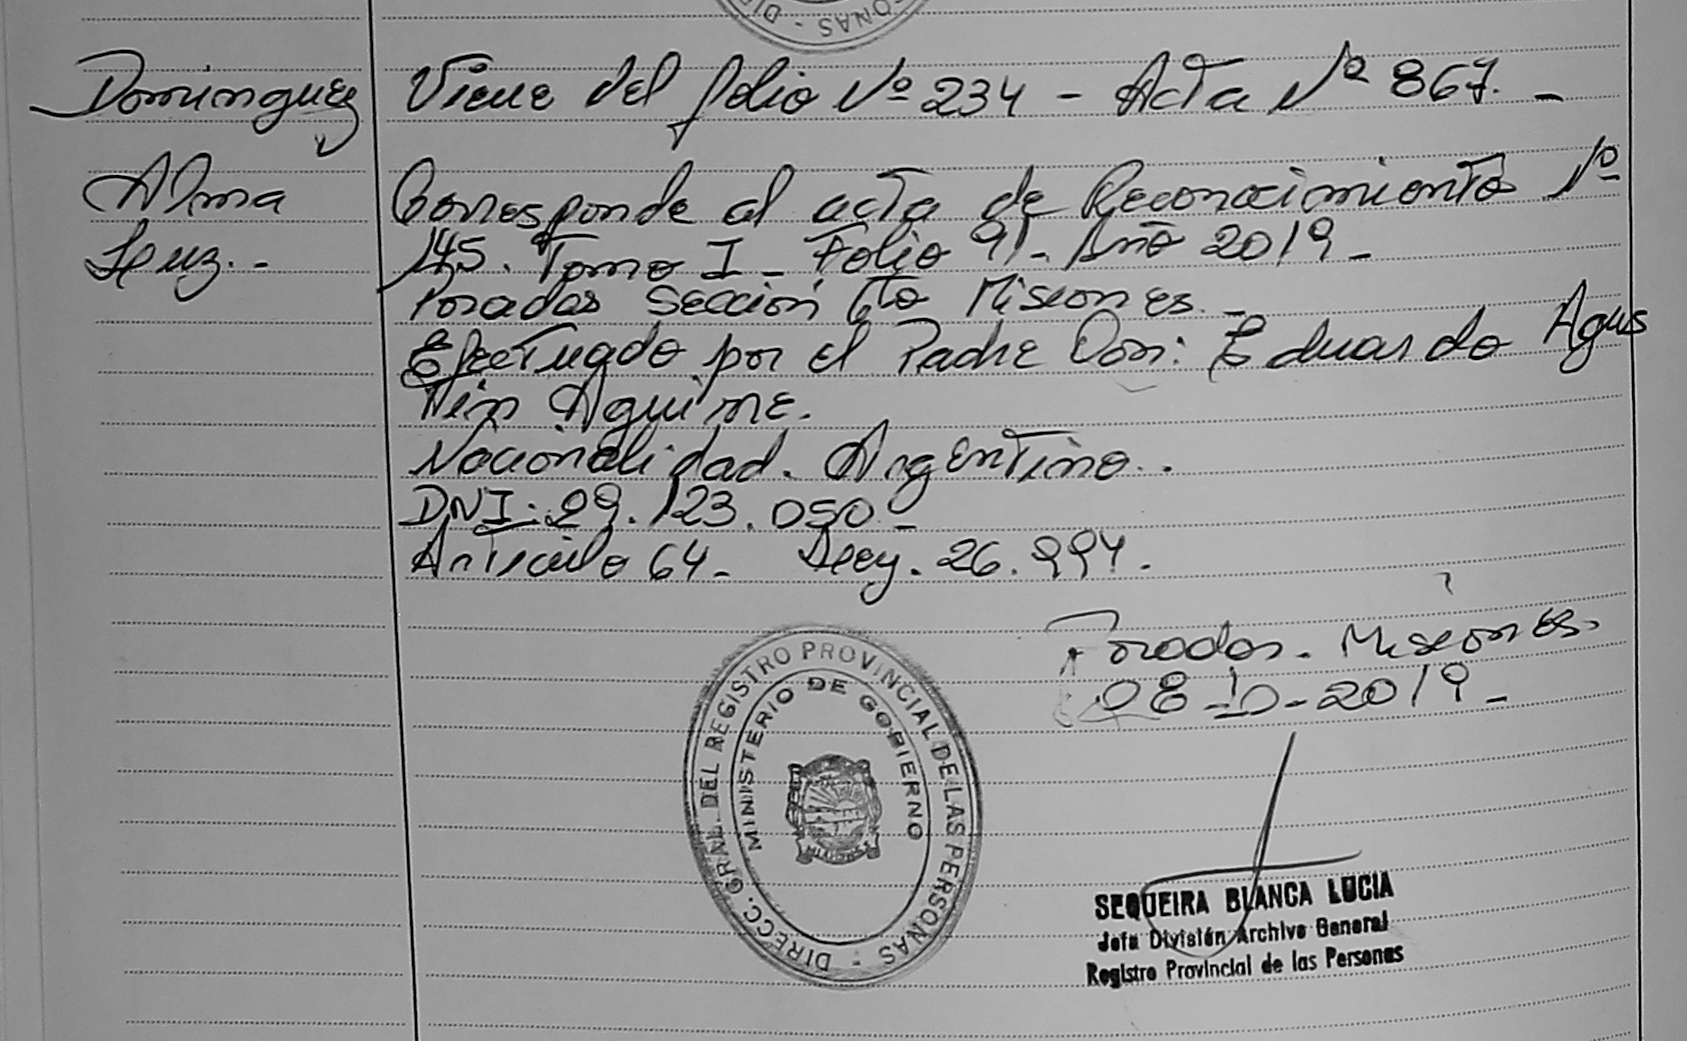 Dominguez
Alma
Luz.-
Viene del folio Nº 234 - Acta Nº 867. -
Corresponde al acta de Reconocimiento Nº
145. Tomo I - Folio 91 - Año 2019 -
Posadas Sección 6to Misiones. -
Efectuado por el Padre Don: Eduardo Agus
tin Aguirre.
Nacionalidad. Argentino..
DNI: 29.123.050 -
Articulo 64 - Ley. 26.994.
Posadas. Misiones.
08-10-2019-
DIRECC. GRAL. DEL REGISTRO PROVINCIAL DE LAS PERSONAS -
MINISTERIO DE GOBIERNO
MISIONES
SEQUEIRA BLANCA LUCIA
Jefa División Archivo General
Registro Provincial de las Personas